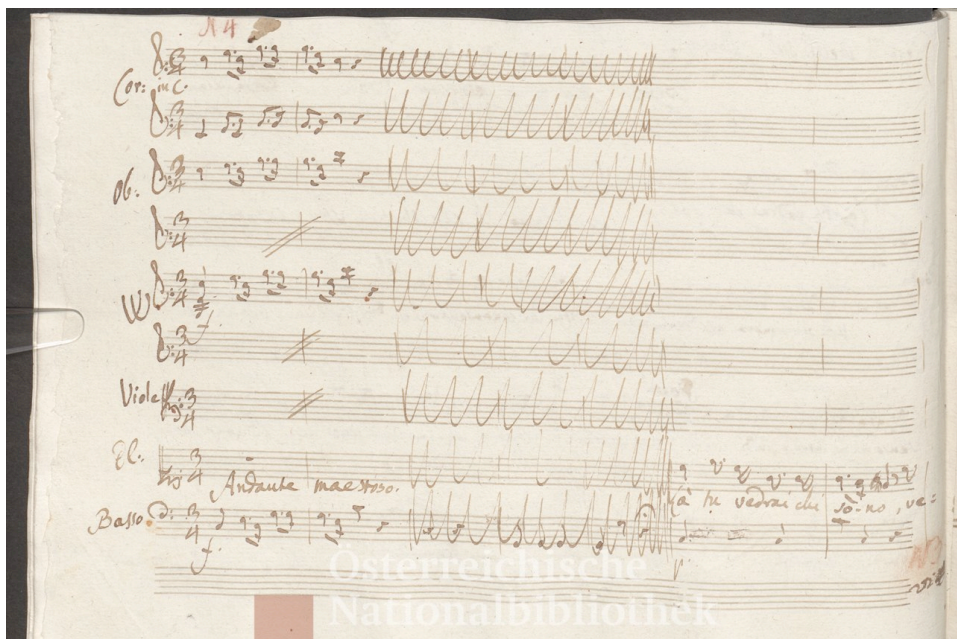 N 4
Cor: in C.
Ob:
VV
Viole
El:
Andante maestoso.
à tu vedrai chi so-no, ve=
Basso
f.
Österreichische
Nationalbibliothek